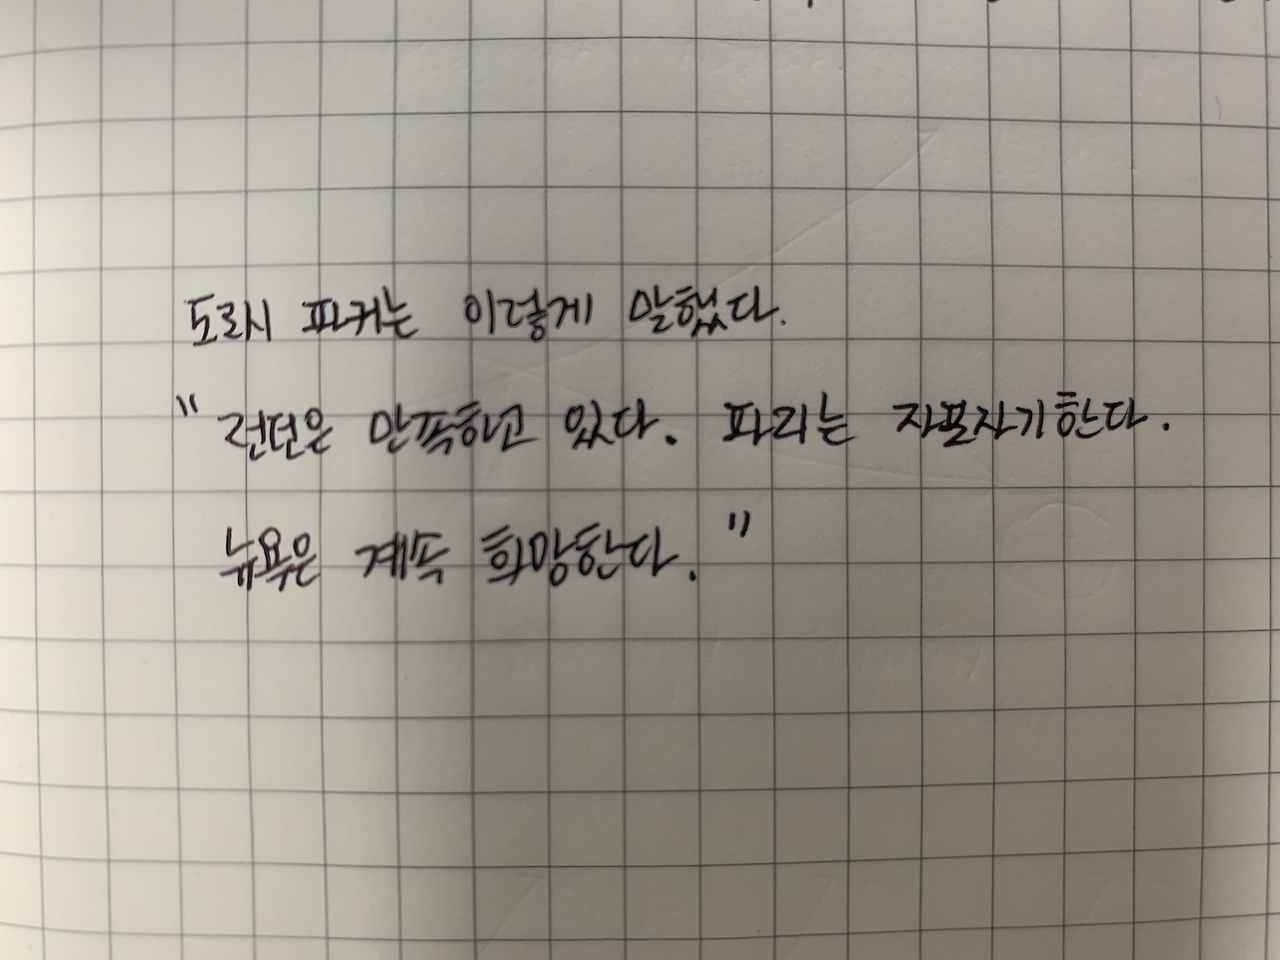 도로시 파커는 이렇게 말했다.
"런던은 만족하고 있다. 파리는 자포자기한다.
뉴욕은 계속 희망한다."